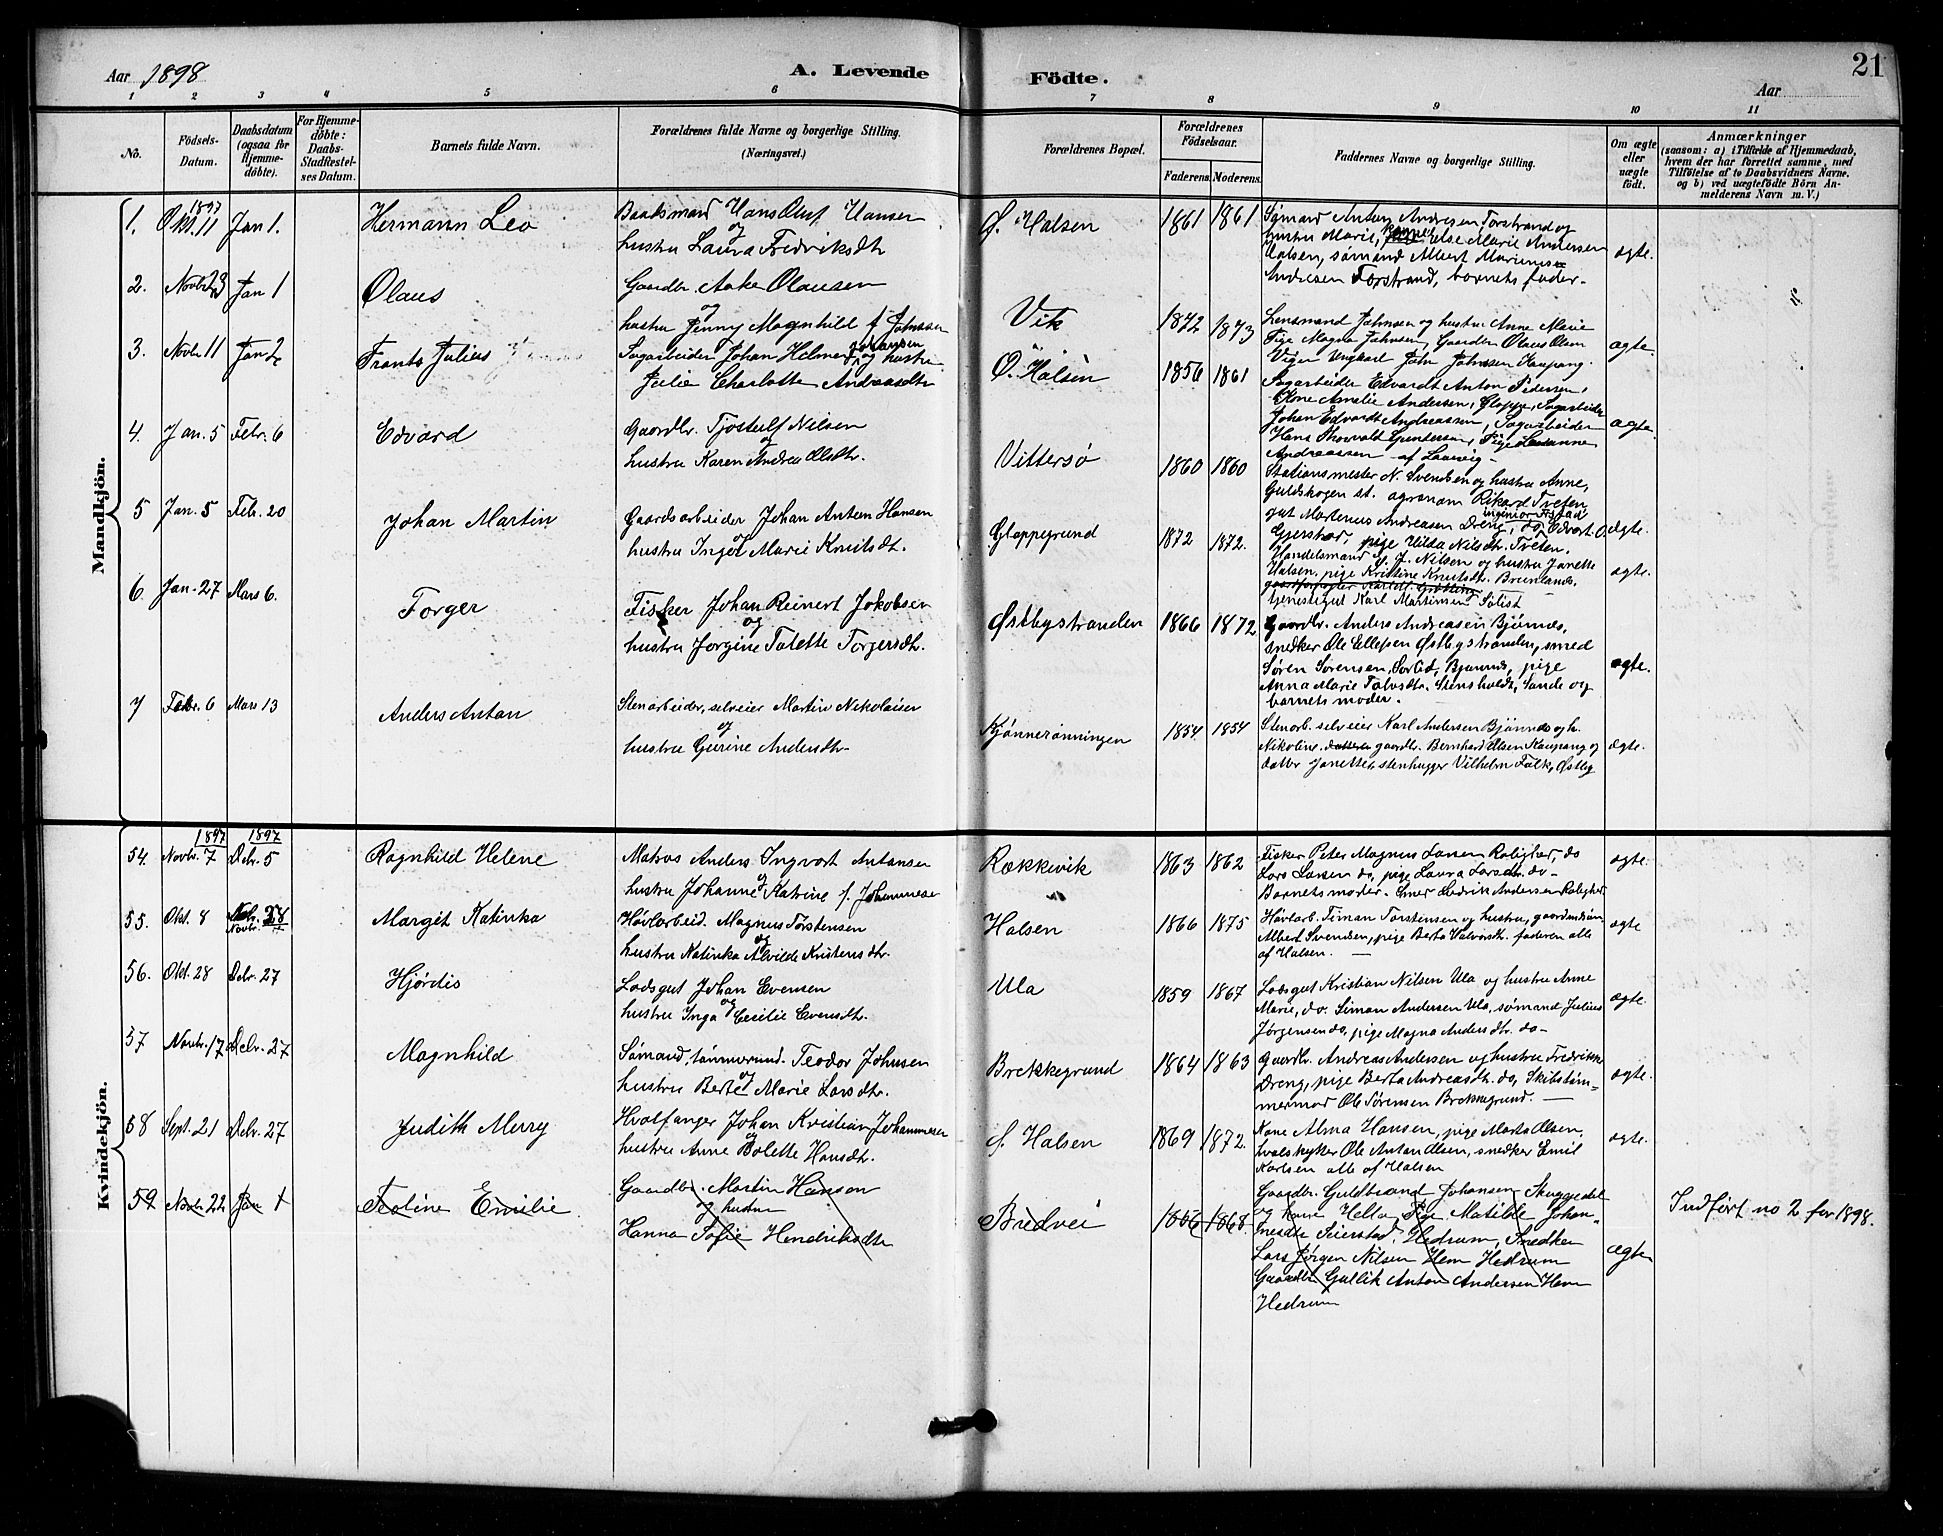 Aar 1898
A. Levende Födte.
Aar
21
1 2 3 4 5 6 7 8 9 10 11
No.
Födsels-Datum.
Daabsdatum (ogsaa for Hjemme-döbte).
For Hjemme-döbte: Daabs-Stadfæstel-ses Datum.
Barnets fulde Navn.
Forældrenes fulde Navne og borgerlige Stilling. (Næringsvei.)
Forældrenes Bopæl.
Forældrenes Födselsaar.
Faderens. Moderens.
Faddernes Navne og borgerlige Stilling.
Om ægte eller uægte födt.
Anmærkninger
(saasom: a) i Tilfælde af Hjemmedaab,
hvem der har forrettet samme, med
Tilföielse af to Daabsvidners Navne.
og b) ved uægtefödte Börn An-
melderens Navn m. V.)
Mandkjön.
1897
1. Okt. 11 Jan 1. Hermann Leo
Baadsmand Hans Oluf Hansen
og
hustru Laura Fredriksdtr
Ø. Halsen 1861 1861
Sømand Anton Andresen Torstrand og
hustru Marie, Else Marie Andersen
Halsen, sømand Albert Marinius
Andresen Torstrand, barnets fader.
ægte.
2. Novbr 23 Jan 1 Olaus
Gaardbr. Anke Olausen
og
hustru Jenny Magnhild f Johnsen
Vik 1872 1873
Lensmand Johnsen og hustru Anne Marie
Pige Magda Johnsen, Gaardbr Olaus Olsen
Ungkarl John Johnsen Kaupang.
ægte.
3. Novbr. 11 Jan 2 Frants Julius
Sagarbeider Johan Helmer Johansen og hustru
Julie Charlotte Andreasdtr
Ø. Halsen 1856 1861
Sagarbeider Edvardt Anton Pedersen,
Kone Amalie Andersen, Gloppe, Sagarbeider
Johan Edvardt Andreassen, Sagarbeider
Hans Thorvald Gundersen, Pige
Andreassen af Laurvig
ægte.
4. Jan. 5 Febr. 6 Edvard
Gaardbr. Tjostulf Nilsen
og
hustru Karen Andrea Olsdtr.
Vittersø 1860 1860
Stationsmester N. Svendsen og hustru Anne,
Guldskogen st. agronom Rikard Tveten
gut Martenus Andreasen Dreng, do, Edvart O.
Gjerstad, pige Hilda Nilsdtr. Tveten.
ægte.
5 Jan. 5 Feb. 20 Johan Martin
Gaardsarbeider Johan Anton Hansen
og
hustru Inger Marie Knutsdtr.
Gloppegrund 1872 1872.
Handelsmand J. Nilsen og hustru Janette
Halsen, pige Kristine Knutsdtr. Brunlanes,
tjenestegut Karl Martinsen Solist
ægte.
6 Jan. 27 Mars 6. Torger
Fisker Johan Reinert Jakobsen
og
hustru Jorgine Talette Torgersdtr.
Østbystranden 1866 1872
Gaardbr. Anders Andreasen Bjønnes,
snedker Ole Ellefsen Østbystranden, smed
Søren Sørensen, Sorlid, Bjønnes, pige
Anna Marie Talvsdtr. Stensholdt, Sande og
barnets moder.
ægte.
7 Febr. 6 Mars 13 Anders Anton
Stenarbeider, selveier Martin Nikolaisen
og
hustru Gurine Andersdtr.
Kjønnerønningen 1854 1854
Stenarb. selveier Karl Andersen Bjønnes og h.
Nikoline. gaardbr. Bernhard Olsen Kaupang og
datter Janette, stenhugger Vilhelm Falk, Østby
ægte.
Kvindekjön.
1897 1897
54. Novbr. 7 Debr. 5 Ragnhild Helene
Matros Anders Ingvart Antonsen
og
hustru Johanne Katrine f. Johannesen
Rækkevik 1863 1862
Fisker Peter Magnus Larsen Rolighed, do
Lars Larsen do, pige Laura Larsdtr. do
Barnets moder. Andersen Rolighed
ægte.
55. Okt. 8 Novbr. 28 Margit Katinka
Høvlarbeid. Magnus Torstensen
og
hustru Katinka Alvilde Kristensdtr.
Halsen 1866 1875
Høvlarb. Timan Torstensen og hustru, gaardmand
Albert Svendsen, pige Berta Halvorsdtr. faderen alle
af Halsen.
ægte
56. Okt. 28 Debr. 27 Hjørdis
Lodsgut Johan Evensen
og
hustru Inga Cecilie Evensdtr.
Ula 1859 1867
Lodsgut Kristian Nilsen Ula og hustru Anne
Marie, do. Simon Andersen Ula, sømand Julius
Jørgensen do, pige Magna Andersdtr. do
ægte.
57 Novbr. 17 Debr. 27 Magnhild
Sømand, tømmermd. Teodor Johnsen
og
hustru Berte Marie Larsdtr.
Brekkegrund 1864 1863
Gaardbr. Andreas Andersen og hustru Fredrikke
Dreng, pige Berta Andreasdtr. do, Skibstøm-
mermand Ole Sørensen Brekkegrund.
ægte.
58 Sept. 21 Debr. 27 Judith Merry
Hvalfanger Johan Kristian Johannesen
og
hustru Anne Bolette Hansdtr.
Halsen 1869 1872.
Kone Alma Hansen, pige Marta Olsen,
hvalskytter Ole Anton Olsen, snedker Emil
Karlsen alle af Halsen
ægte.
59 Novbr. 22 Jan 1 Teoline Emilie
Gaardbr. Martin Hanson
og hustru
Hanna Sofie Hendriksdtr
Bredvei 1866 1868.
Gaardbr. Guldbrand Johansen Skuggedal
og kone Helta Pige Matilde Johan-
nesdtr Seierstad, Hedrum, Snedker
Lars Jørgen Nilsen Hem Hedrum
Gaardbr Gullik Anton Andersen Hem
Hedrum
ægte
Indført no 2 for 1898.